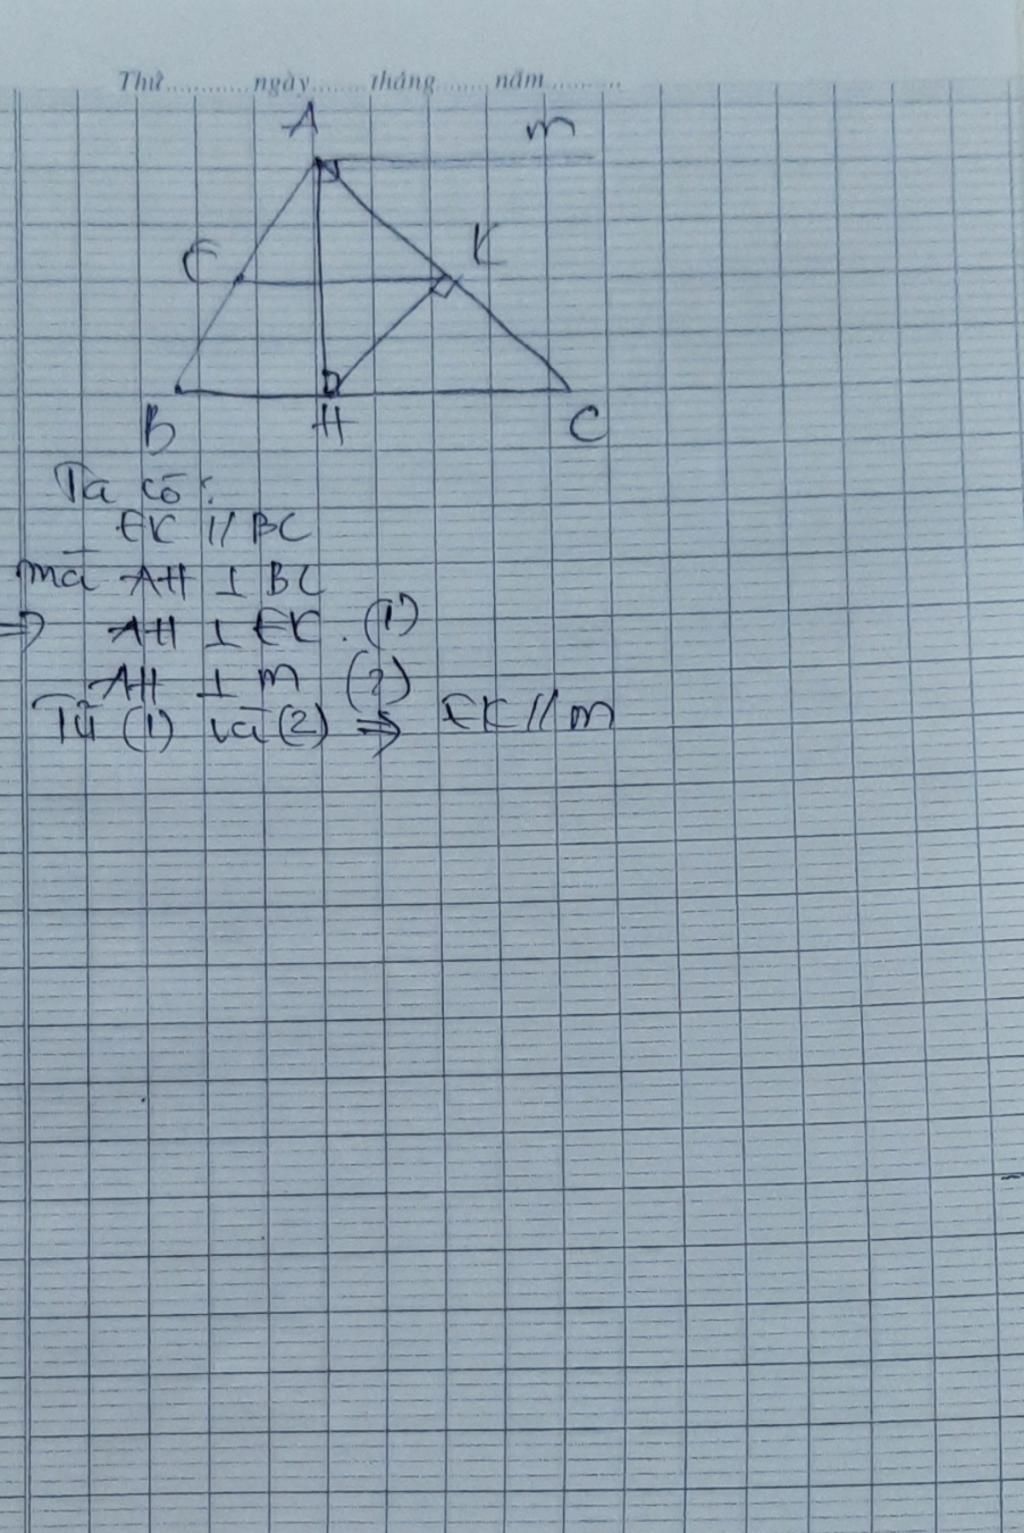 Thứ............ngày........tháng.......năm..........
A
m
E
K
B
H
C
Ta có :
EK // BC
mà AH ⊥ BC
=> AH ⊥ EK. (1)
AH ⊥ m (2)
Từ (1) và (2) => EK // m